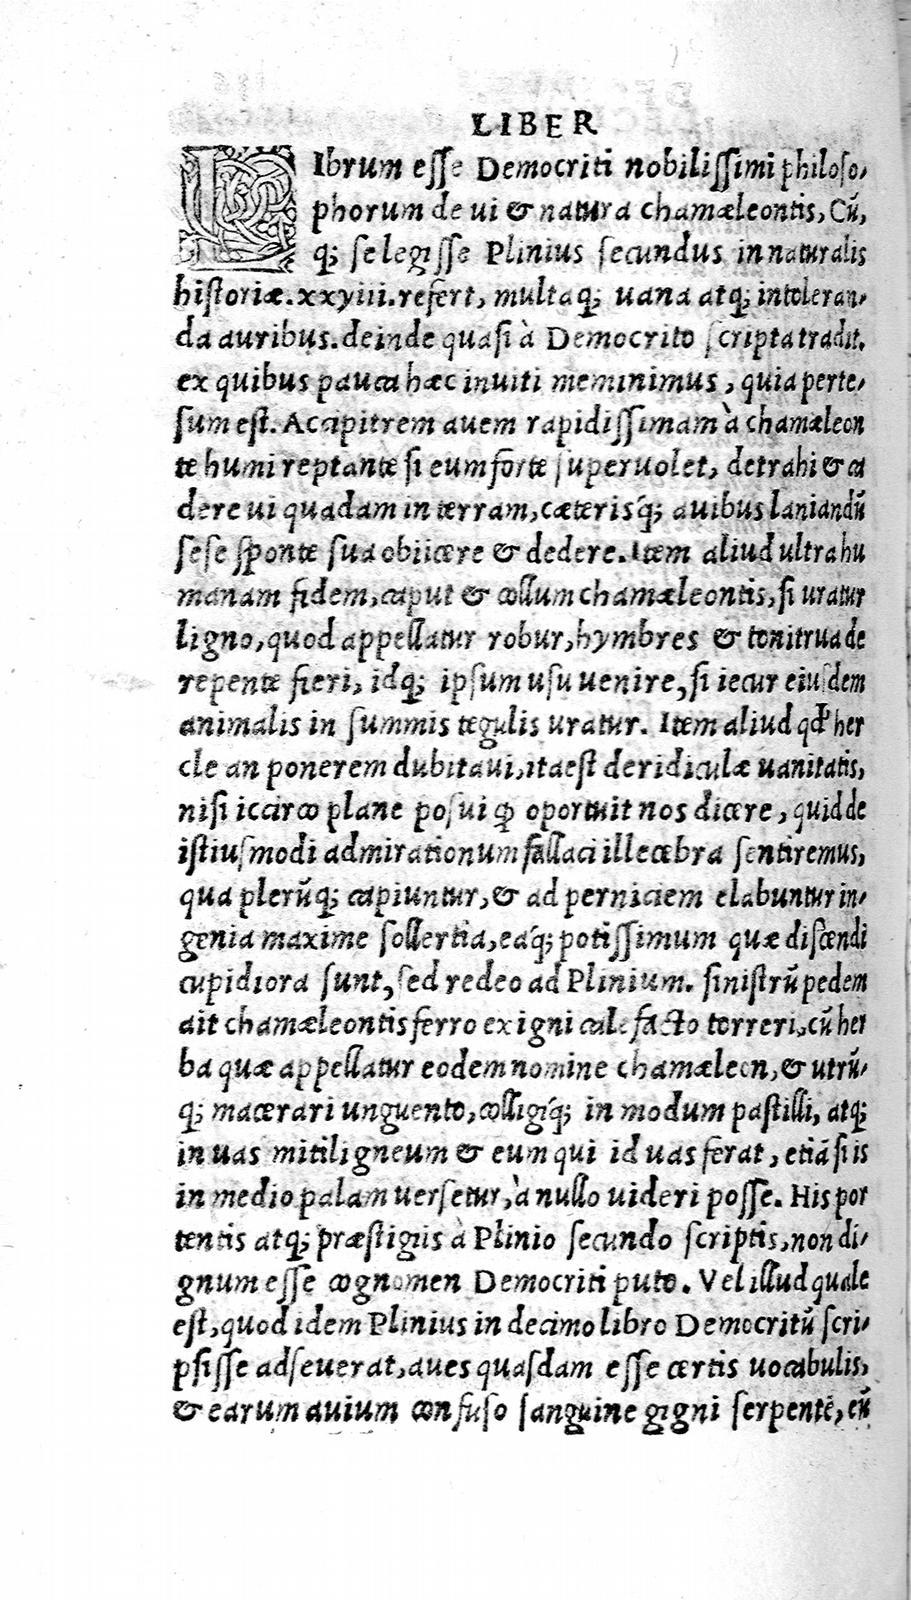 LIBER
LIbrum esse Democriti nobilissimi philoso,
phorum de ui & natura chamæleontis, Cũ,
q; se legisse Plinius secundus in naturalis
historiæ.xxyiii.refert, multaq; uana atq; intoleran,
da auribus.deinde quasi à Democrito scripta tradit.
ex quibus pauca hæc inuiti meminimus, quia perte,
sum est. Accipitrem auem rapidissimam à chamæleon
te humi reptante si eum forte superuolet, detrahi & ca
dere ui quadam in terram, cæterisq́; auibus laniandũ
sese sponte sua obiicere & dedere. Item aliud ultra hu
manam fidem, caput & collum chamæleontis, si uratur
ligno, quod appellatur robur, hymbres & tonitrua de
repente fieri, idq; ipsum usu uenire, si iecur eiusdem
animalis in summis tegulis uratur. Item aliud qđ her
cle an ponerem dubitaui, ita est deridiculæ uanitatis,
nisi iccirco plane posui ꝙ oportuit nos dicere, quid de
istiusmodi admirationum fallaci illecebra sentiremus,
qua plerũq; capiuntur, & ad perniciem elabuntur in,
genia maxime sollertia, eáq; potissimum quæ discendi
cupidiora sunt, sed redeo ad Plinium. sinistrũ pedem
ait chamæleontis ferro ex igni calefacto torreri, cũ her
ba quæ appellatur eodem nomine chamæleon, & utrũ,
q; macerari unguento, colligíq; in modum pastilli, atq;
in uas mitti ligneum & eum qui id uas ferat, etiã si is
in medio palam uersetur, à nullo uideri posse. His por
tentis atq; præstigiis à Plinio secundo scriptis, non di,
gnum esse cognomen Democriti puto. Vel illud quale
est, quod idem Plinius in decimo libro Democritũ scri,
psisse adseuerat, aues quasdam esse certis uocabulis,
& earum auium confuso sanguine gigni serpentẽ, eũ